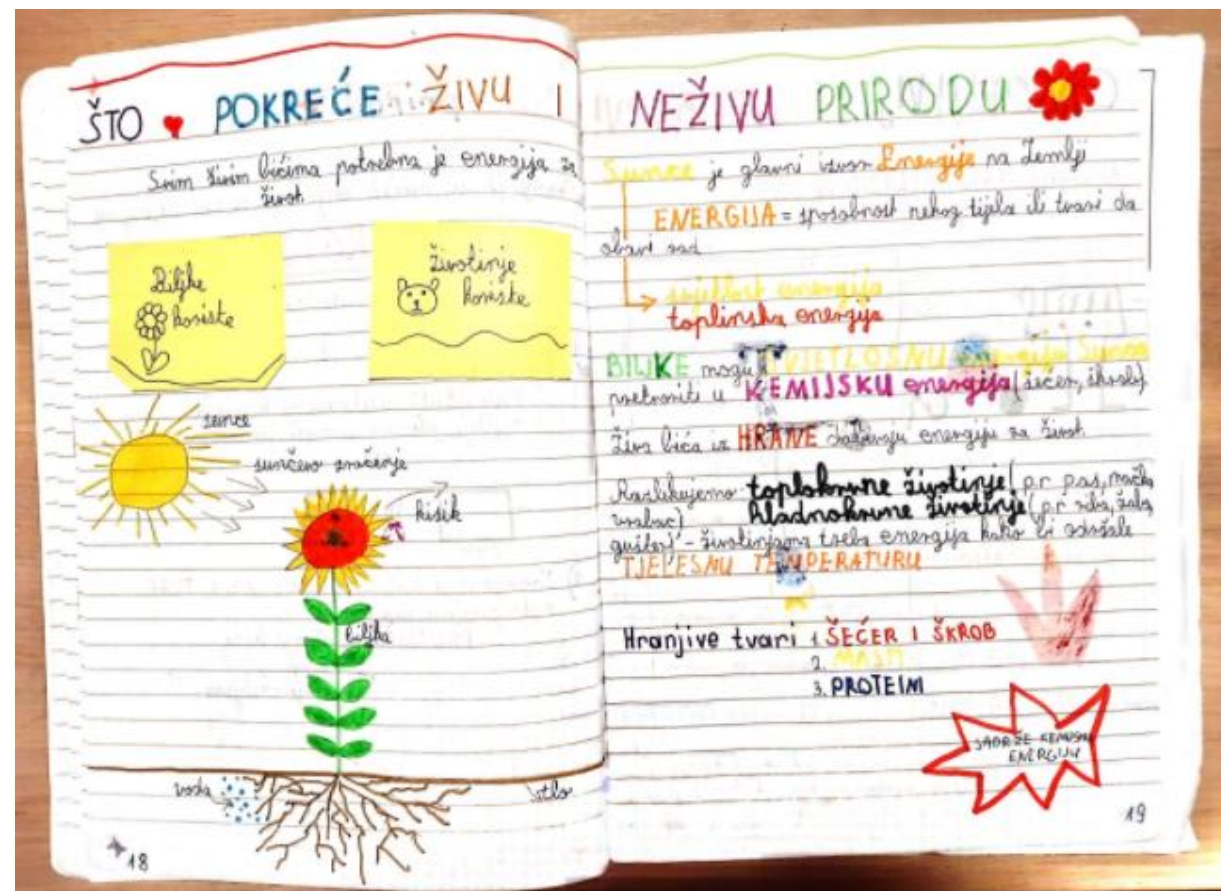 ŠTO POKREĆE ŽIVU I NEŽIVU PRIRODU
Svim živim bićima potrebna je energija za
život.
Biljke
koriste
životinje
koriste
sunce
sunčevo zračenje
kisik
biljka
voda
tlo
18
Sunce je glavni izvor Energije na Zemlji
ENERGIJA = sposobnost nekog tijela ili tvari da
obavi rad
svjetlost energija
toplinska energija
BILJKE mogu SVJETLOSNU energiju Sunca
pretvoriti u KEMIJSKU energija (šećer, škrob)
Živa bića iz HRANE dobivaju energiju za život.
Razlikujemo toplokrvne životinje (pr. pas, mačka,
vrabac) hladnokrvne životinje (pr. riba, žaba,
gušter) - životinjama treba energija kako bi održale
TJELESNU TEMPERATURU
Hranjive tvari 1. ŠEĆER I ŠKROB
2. MASTI
3. PROTEINI
SADRŽE KEMIJSKU
ENERGIJU
19